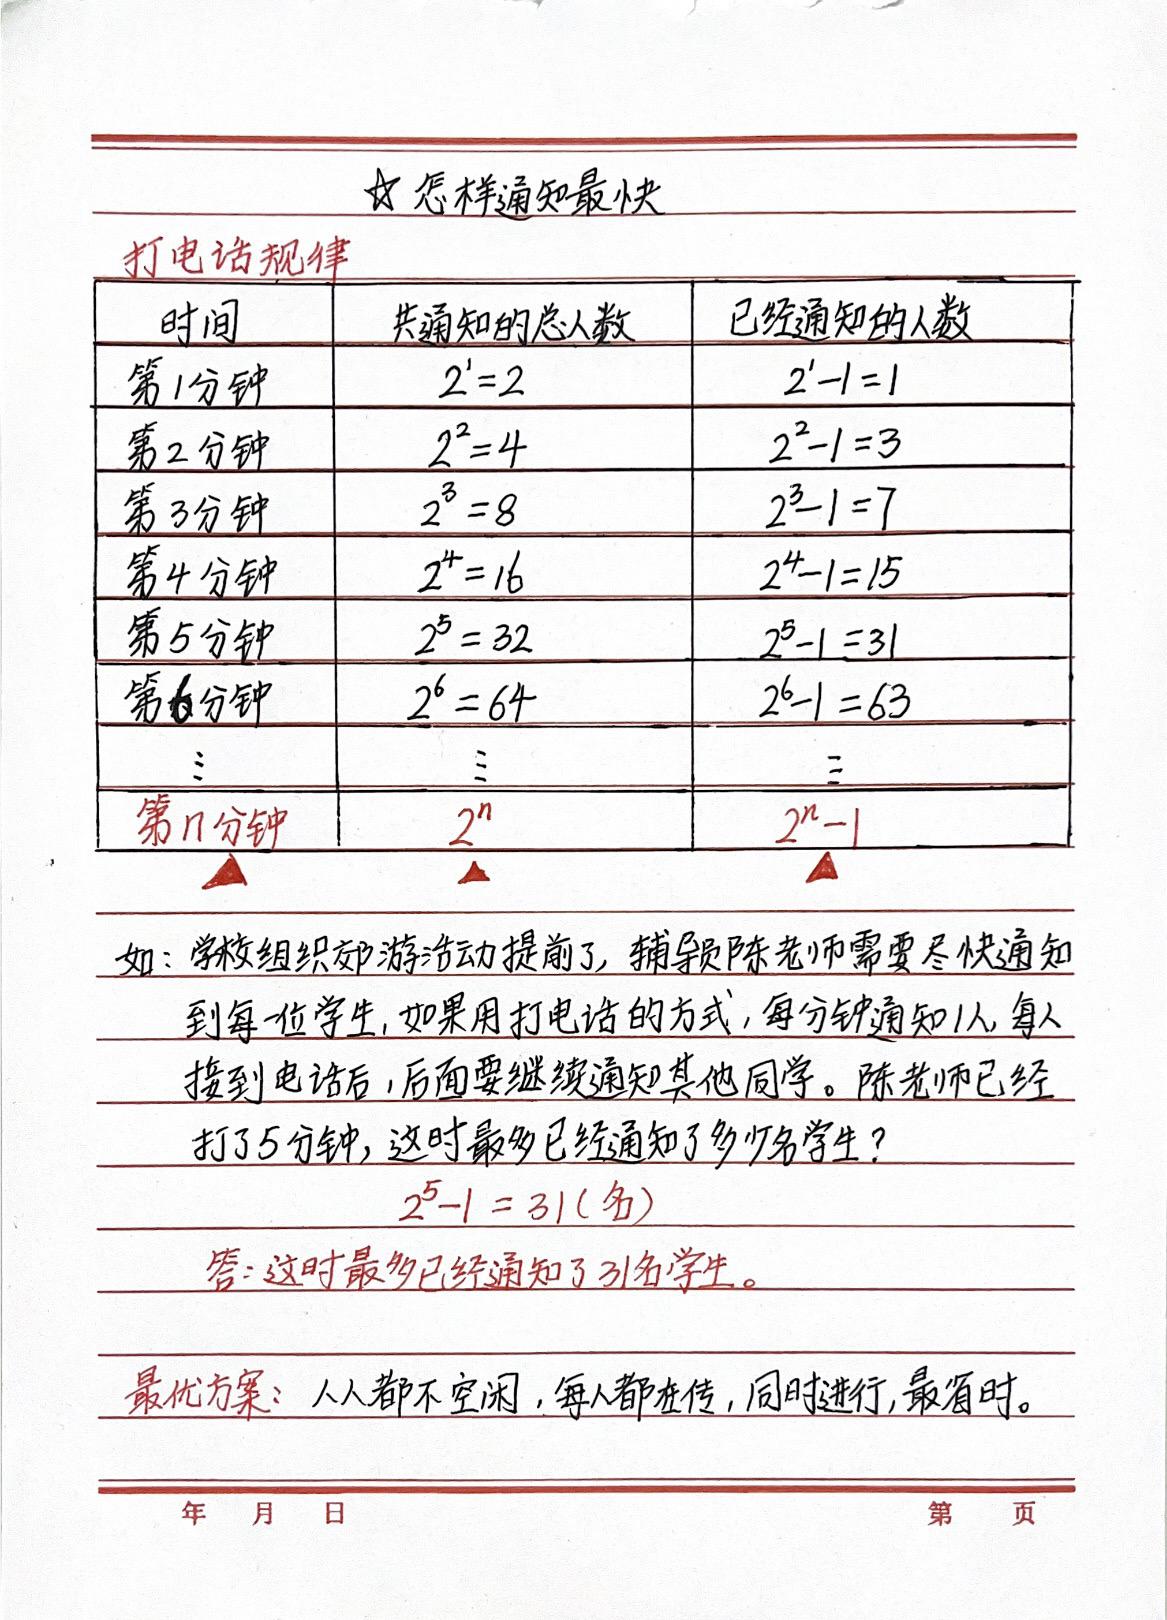 ☆怎样通知最快
打电话规律
时间 共通知的总人数 已经通知的人数
第1分钟 2¹=2 2¹-1=1
第2分钟 2²=4 2²-1=3
第3分钟 2³=8 2³-1=7
第4分钟 2⁴=16 2⁴-1=15
第5分钟 2⁵=32 2⁵-1=31
第6分钟 2⁶=64 2⁶-1=63
⋮ ⋮ ⋮
第n分钟 2ⁿ 2ⁿ-1
如：学校组织郊游活动提前了，辅导员陈老师需要尽快通知
到每一位学生，如果用打电话的方式，每分钟通知1人，每人
接到电话后，后面要继续通知其他同学。陈老师已经
打了5分钟，这时最多已经通知了多少名学生？
2⁵-1=31（名）
答：这时最多已经通知了31名学生。
最优方案：人人都不空闲，每人都在传，同时进行，最省时。
年 月 日 第 页